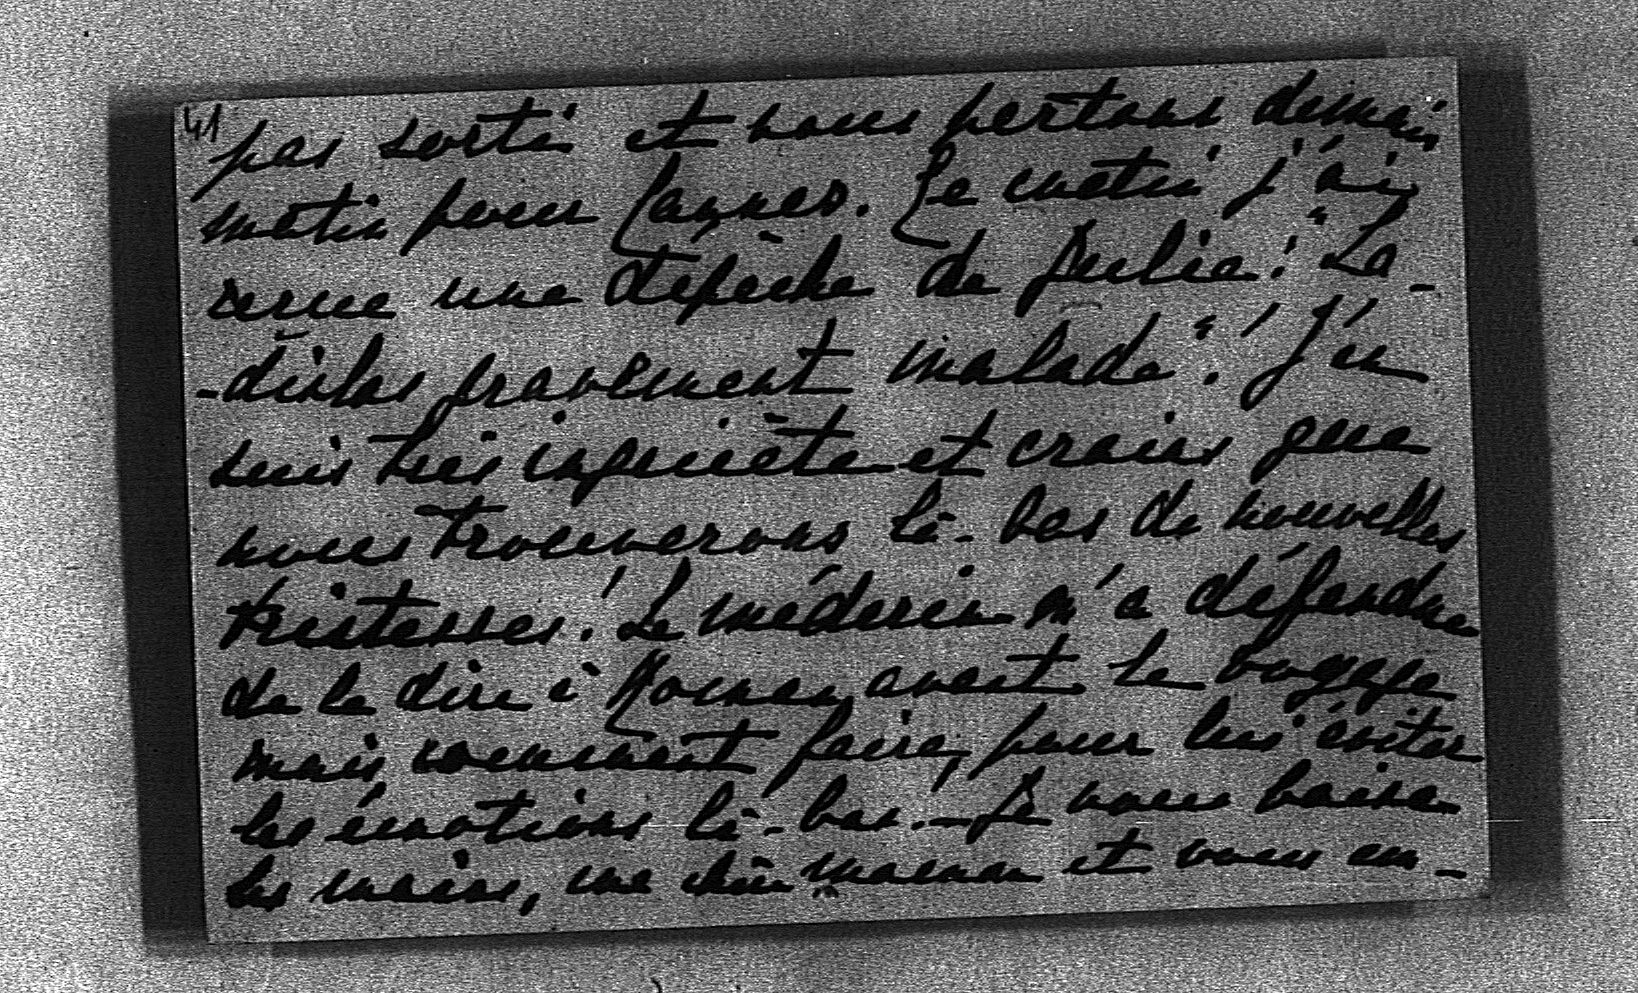 41
pas sorti et nous partons demain
matin pour Cannes. Ce matin j'ai
reçue une dépêche de Julie: "La-
-dislas gravement malade"! J'en
suis très inquiète et crains que
nous trouverons là-bas de nouvelles
tristesses! Le médecin m'a défendue
de le dire à avant le voyage
mais comment faire, pour lui éviter
les émotions là-bas. – Je vous baise
les mains, ma chère maman et vous em-